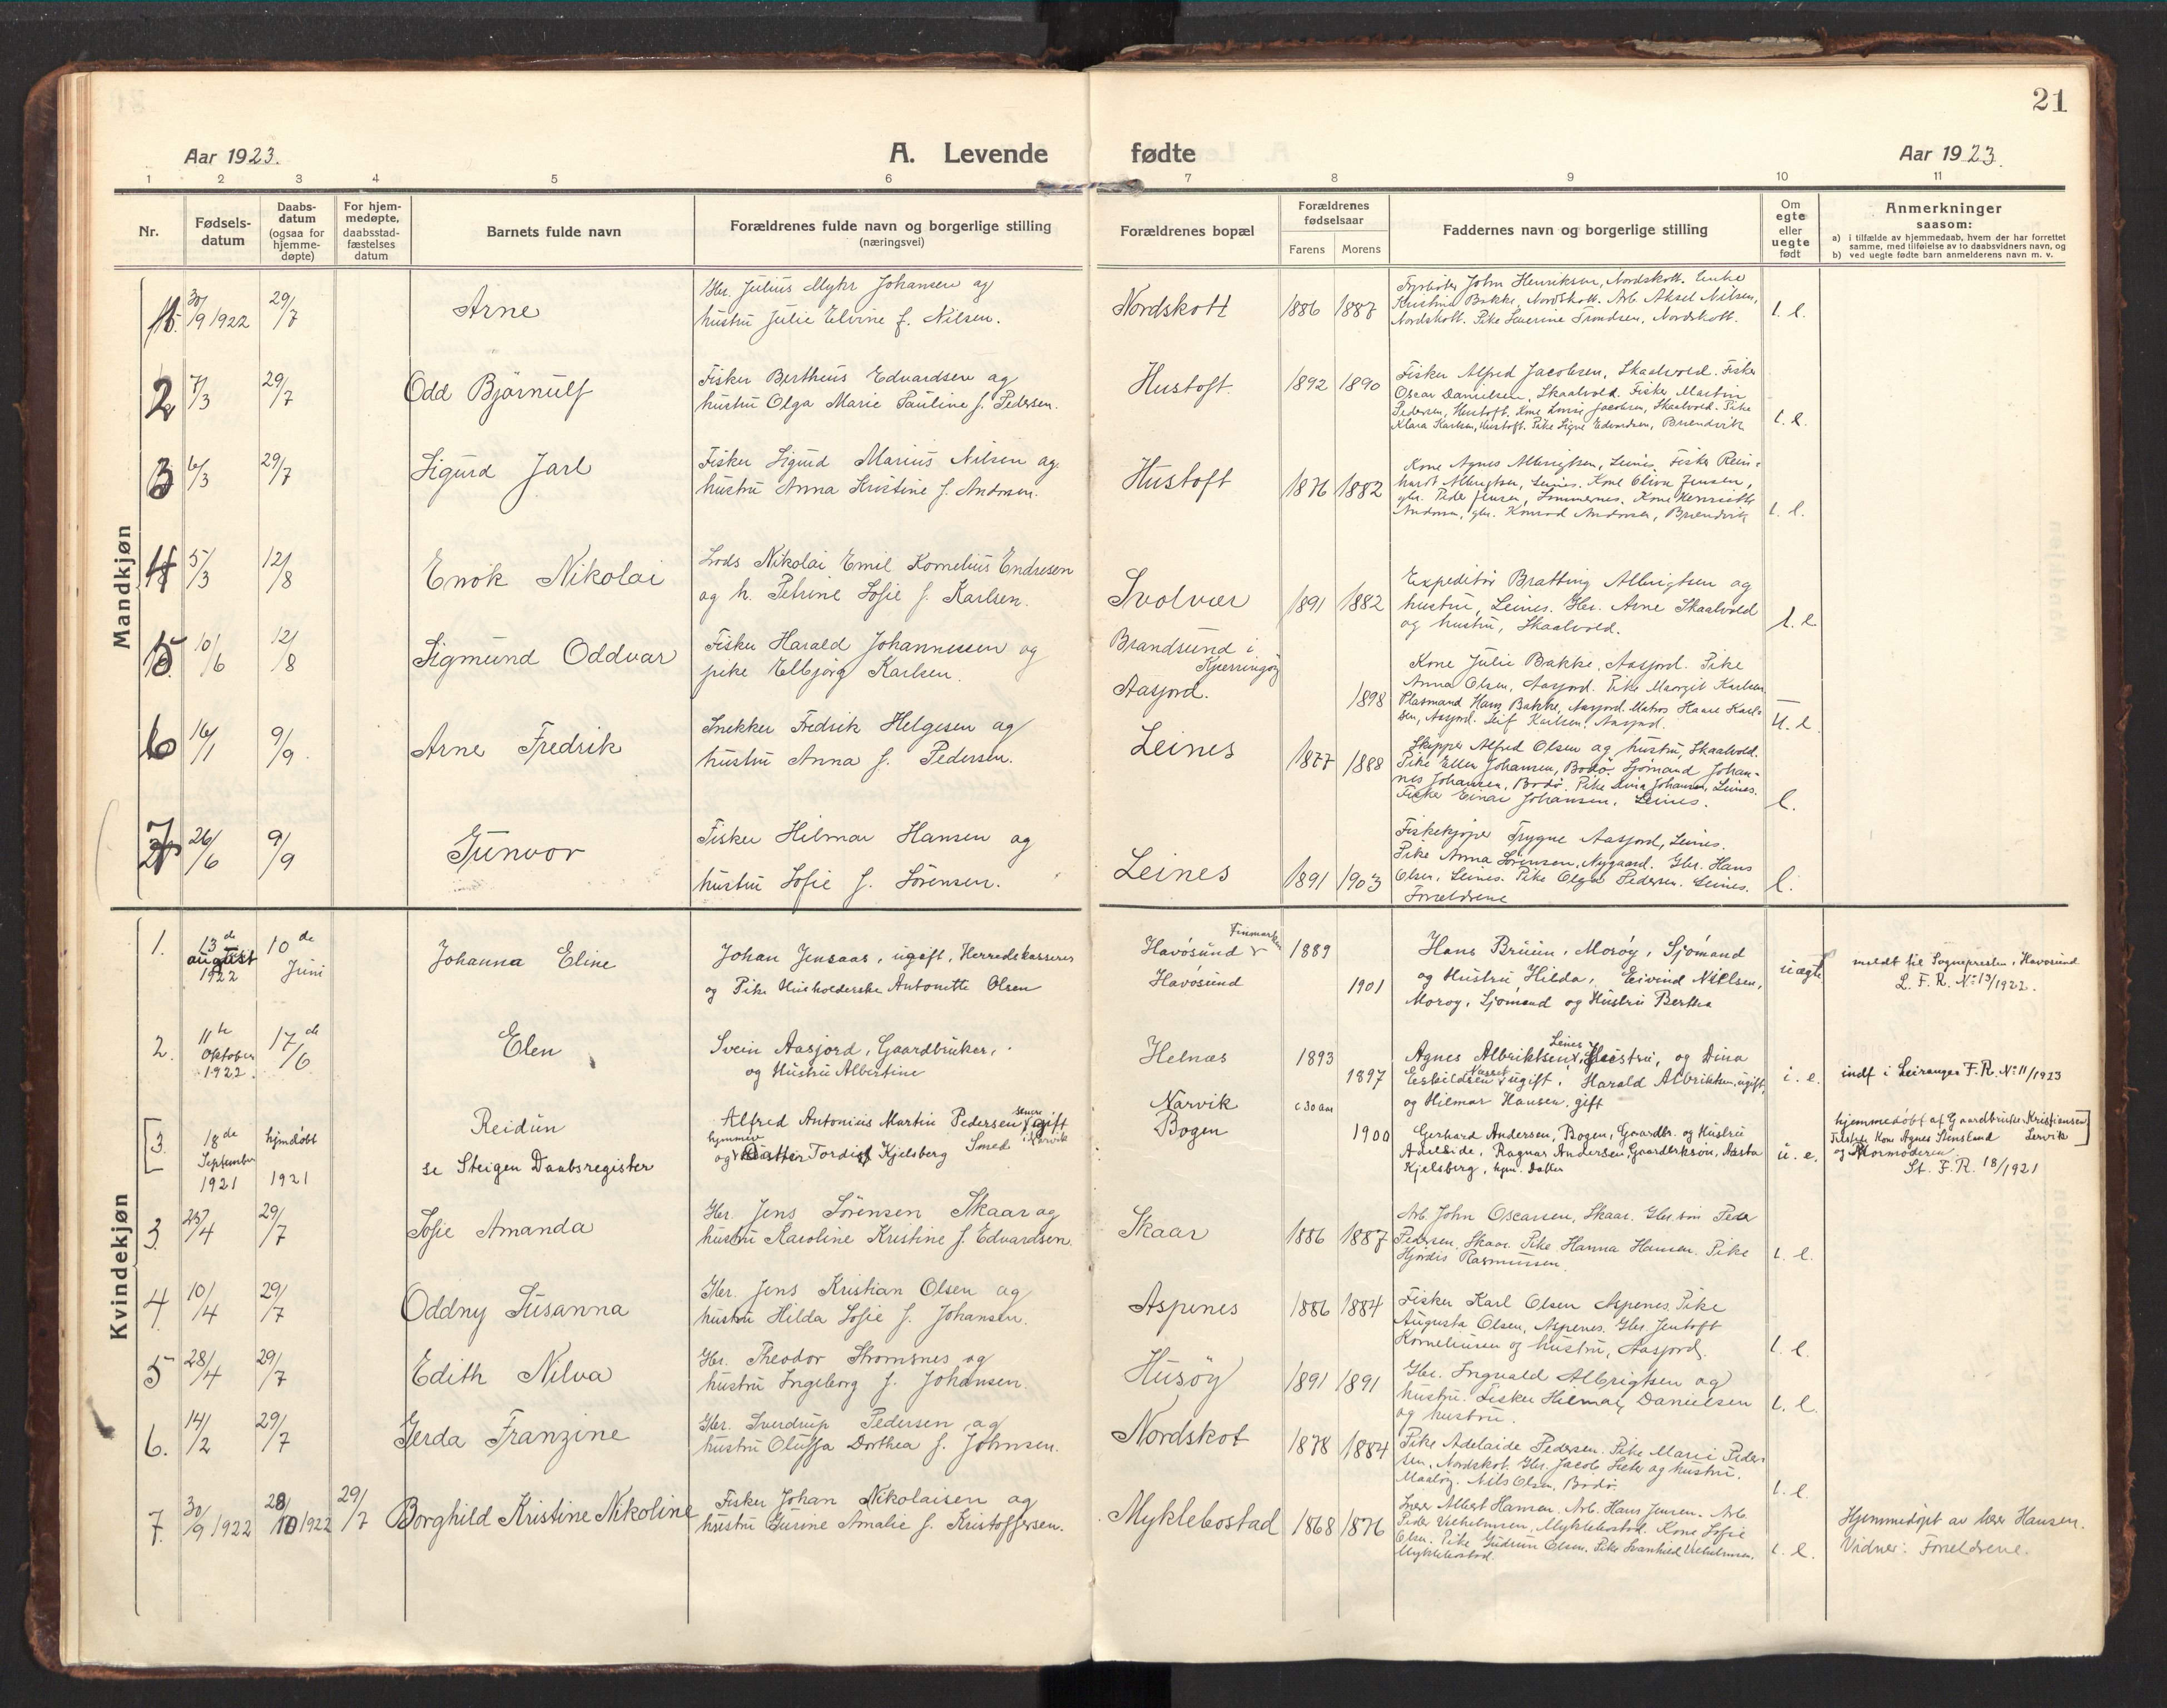 21
Aar 1923.
A. Levende fødte
Aar 1923.
1 2 3 4 5 6 7 8 9 10 11
Nr.
Fødsels-
datum
Daabs-
datum
(ogsaa for
hjemme-
døpte)
For hjem-
medøpte,
daabsstad-
fæstelses
datum
Barnets fulde navn
Forældrenes fulde navn og borgerlige stilling
(næringsvei)
Forældrenes bopæl
Forældrenes
fødselsaar
Farens Morens
Faddernes navn og borgerlige stilling
Om
egte
eller
uegte
født
Anmerkninger
saasom:
a) i tilfælde av hjemmedaab, hvem der har forrettet
samme, med tilføielse av to daabsvidners navn, og
b) ved uegte fødte barn anmelderens navn m. v.
Mandkjøn
30/9 1922 29/7
Arne
Gbr. Julius Myhr Johansen og
hustru Julie Elvine f. Nilsen.
Nordskott 1886 1887
John Henriksen, Nordskott. Enke
Kristine Bakke, Nordskott. Arb. Aksel Nilsen,
Nordskott. Pike Severine Trondsen, Nordskott.
1. e.
2 7/3 29/7
Odd Bjørnulf
Fisker Bertheus Edvardsen og
hustru Olga Marie Pauline f. Pedersen.
Hustoft. 1892 1890
Fisker Alfred Jacobsen, Skaalvold. Fisker
Oscar Danielsen, Skaalvold. Fisker Martin
Pedersen, Hustoft. Kone Jacobsen, Skaalvold. Pike
Klara Karlsen, Hustoft. Pike Signe Edvardsen, Brændvik
1. e.
3 6/3 29/7
Sigurd Jarl
Fisker Sigurd Marius Nilsen og
hustru Anna Kristine f. Andersen.
Hustoft 1876 1882
Kone Agnes Albrigtsen, Leines. Fisker Rein-
hardt Albrigtsen, Leines. Kone Oliva Jensen,
gbr. Peder Jensen, Sommernes. Kone Henriette
Andersen, gbr. Konrad Andersen, Brændvik
1. e.
4 5/3 12/8
Enok Nikolai
Lods Nikolai Emil Kornelius Endresen
og h. Petrine Sofie f. Karlsen.
Svolvær 1891 1882
Expeditør Bratting Albrigtsen og
hustru, Leines. Gbr. Arne Skaalvold
og hustru, Skaalvold.
1. e.
5 10/6 12/8
Sigmund Oddvar
Fisker Harald Johannessen og
pike Elbjørg Karlsen.
Brandsund i
Kjerringøy
Aasjord. 1898
Kone Julie Bakke, Aasjord. Pike
Anna Olsen, Aasjord. Pike Margit Karlsen
Plasmand Hans Bakke, Aasjord. Matros Haare Karl-
sen, Aasjord. Leif Karlsen, Aasjord.
u. e.
6 16/1 9/9
Arne Fredrik
Snekker Fredrik Helgesen og
hustru Anna f. Pedersen.
Leines 1877 1888
Skipper Alfred Olsen og hustru, Skaalvold.
Pike Ellen Johansen, Bodø. Sjømand Johan-
nes Johansen, Bodø. Pike Johansen, Leines.
Fisker Einar Johansen, Leines.
e.
7 26/6 9/9
Gunvor
Fisker Hilmar Hansen og
hustru Sofie f. Sørensen.
Leines 1891 1903
Fiskekjøper Trygve Aasjord, Leines.
Pike Anna Sørensen, Nygaard. Gbr. Hans
Olsen, Leines. Pike Olga Pedersen, Leines.
Forældrene
e.
Kvindekjøn
1. 13de august 1922 10de Juni
Johanna Eline
Johan Jensaas, ugift, Herredskasserer
og Pike Husholderske Antonitte Olsen
Finmarken
Havösund 1889
Havösund 1901
Hans Bruun, Moröy, Sjömand
og Hustru Hilda, Eivind Nielsen,
Moröy, Sjömand og Hustru Bertha
uægte
meldt til Sognepresten i Havösund
L. F. R. No 13/1922.
2. 11te Oktober 1922. 17de/6
Elen
Svein Aasjord, Gaardbruker,
og Hustru Albertine
Helnæs 1893
1897
Leines
Agnes Albriktsen, Hustru, og Dina
Eskildsen ugift, Harald Albriktsen, ugift,
og Hilmar Hansen, gift
i. e.
indf i Leiranger F. R. No 11/1923
[3. 18de September 1921 hjmdöbt 1921
Reidun
se Steigen Daabsregister
Alfred Antonius Martin Pedersen gift
hjemmev
og Datter Tordis Kjelsberg Smed i Narvik
Narvik c 30 aar
Bogen 1900
Gerhard Andersen, Bogen, Gaardbr. og Hustru
Adeleide, Ragnar Andersen, Gaardbrksøn, Aasta
Kjelsberg, hjm. datter
u. e.
hjemmedöbt af Gaardbruker Kristiansen]
Kone Agnes Stensland Lervik
og Mormoderen.
St. F. R. 18/1921
3. 29/7
Sofie Amanda
Gbr. Jens Sörensen Skaar og
hustru Karoline Kristine f. Edvardsen.
Skaar 1886 1887
Arb. John Oscarsen, Skaar. Gbr. søn Peder
Pedersen, Skaar. Pike Hanna Hansen. Pike
Hjørdis Rasmussen.
1. e.
4. 10/4 29/7
Oddny Susanna
Gbr. Jens Kristian Olsen og
hustru Hilda Sofie f. Johansen.
Aspenes 1886 1884
Fisker Karl Olsen Aspenes. Pike
Augusta Olsen, Aspenes. Gbr. Jentoft
Korneliusen og hustru, Aasjord.
1. e.
5 28/4 29/7
Edith Nilva
Gbr. Theodor Stromsnes og
hustru Ingeborg f. Johansen.
Husöy 1891 1891
Gbr. Ingvald Albrigtsen og
hustru. Fisker Hilmar Danielsen
og hustru.
1. e.
6. 14/2 29/7
Gerda Franzine
Gbr. Sverdrup Pedersen og
hustru Oluffa Dorthea f. Johnsen.
Nordskot 1878 1884
Pike Adelaide Pedersen. Pike Marie Peder-
sen, Nordskot. Gbr. Jacob og hustru,
Maaløy. Nils Olsen, Bodø.
1. e.
7. 30/9 1922 28/10 1922 29/7
Borghild Kristine Nikoline
Fisker Johan Nikolaisen og
hustru Gurine Amalie f. Kristoffersen.
Myklebostad 1868 1876
Lærer Albert Hansen. Arb. Hans Jensen. Arb.
Peder Vilhelmsen, Myklebostad. Kone Sofie
Olsen. Pike Gudrun Olsen. Pike Svanhild Vilhelmsen,
Myklebostad.
1. e.
Hjemmedøpt av lærer Hansen.
Vidner: Forældrene.